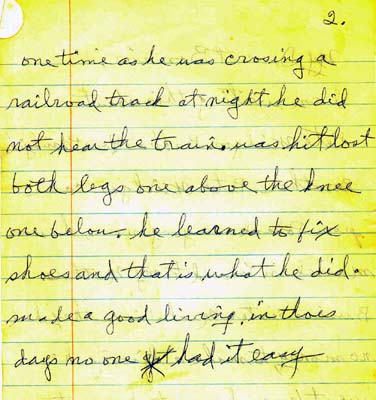 2.
one time as he was crosing a
railroad track at night he did
not hear the train. was hit lost
both legs one above the knee
one below. he learned to fix
shoes and that is what he did.
made a good living. in thoes
days no one had it easy